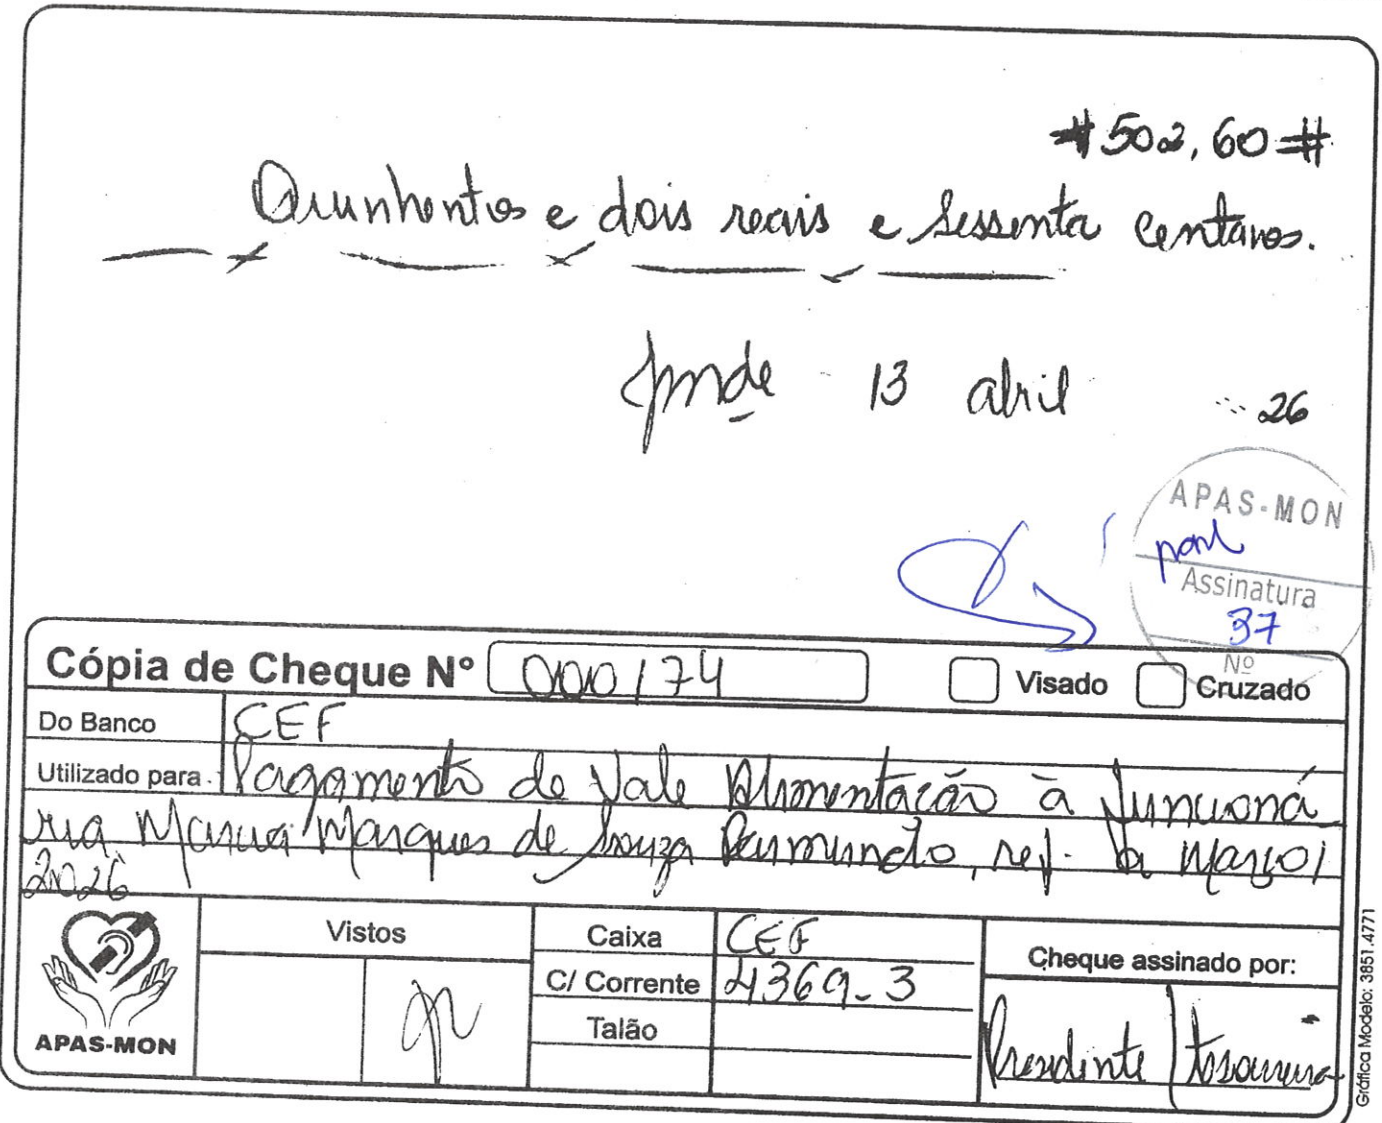 #502,60#
Quinhentos e dois reais e sessenta centavos.
13 abril 26
APAS-MON
Assinatura
37
Nº
Cópia de Cheque Nº 000174
Visado
Cruzado
Do Banco CEF
Utilizado para Pagamento de Vale Alimentação à funcioná
ria Maria Marques de Souza Raimundo, ref. a março/
2026
Vistos
Caixa CEF
C/ Corrente 4369-3
Talão
Cheque assinado por:
Presidente / tesoureira
APAS-MON
Gráfica Modelo: 3851.4771